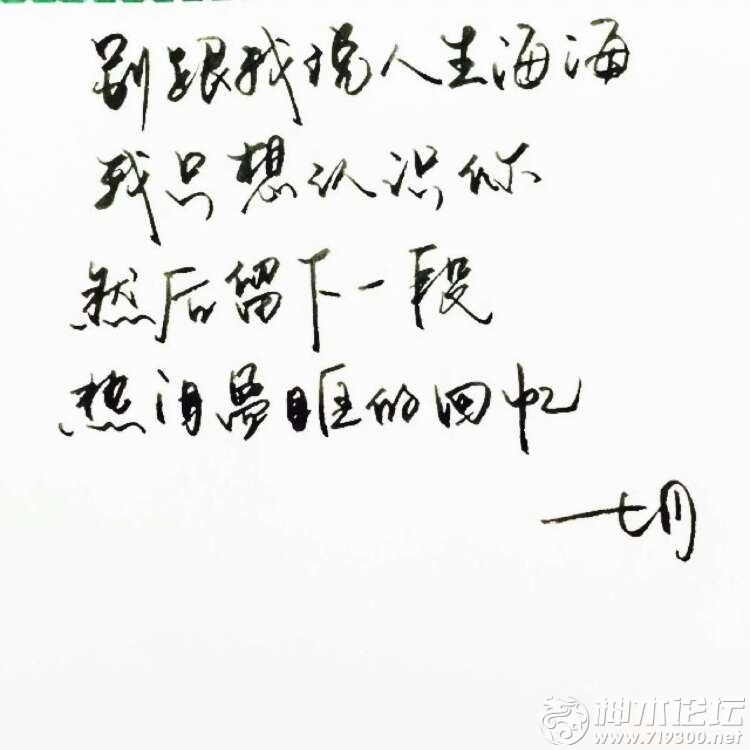 别跟我说人生海海
我只想认识你
然后留下一段
热泪盈眶的回忆
一七月
神木论坛
www.719300.net